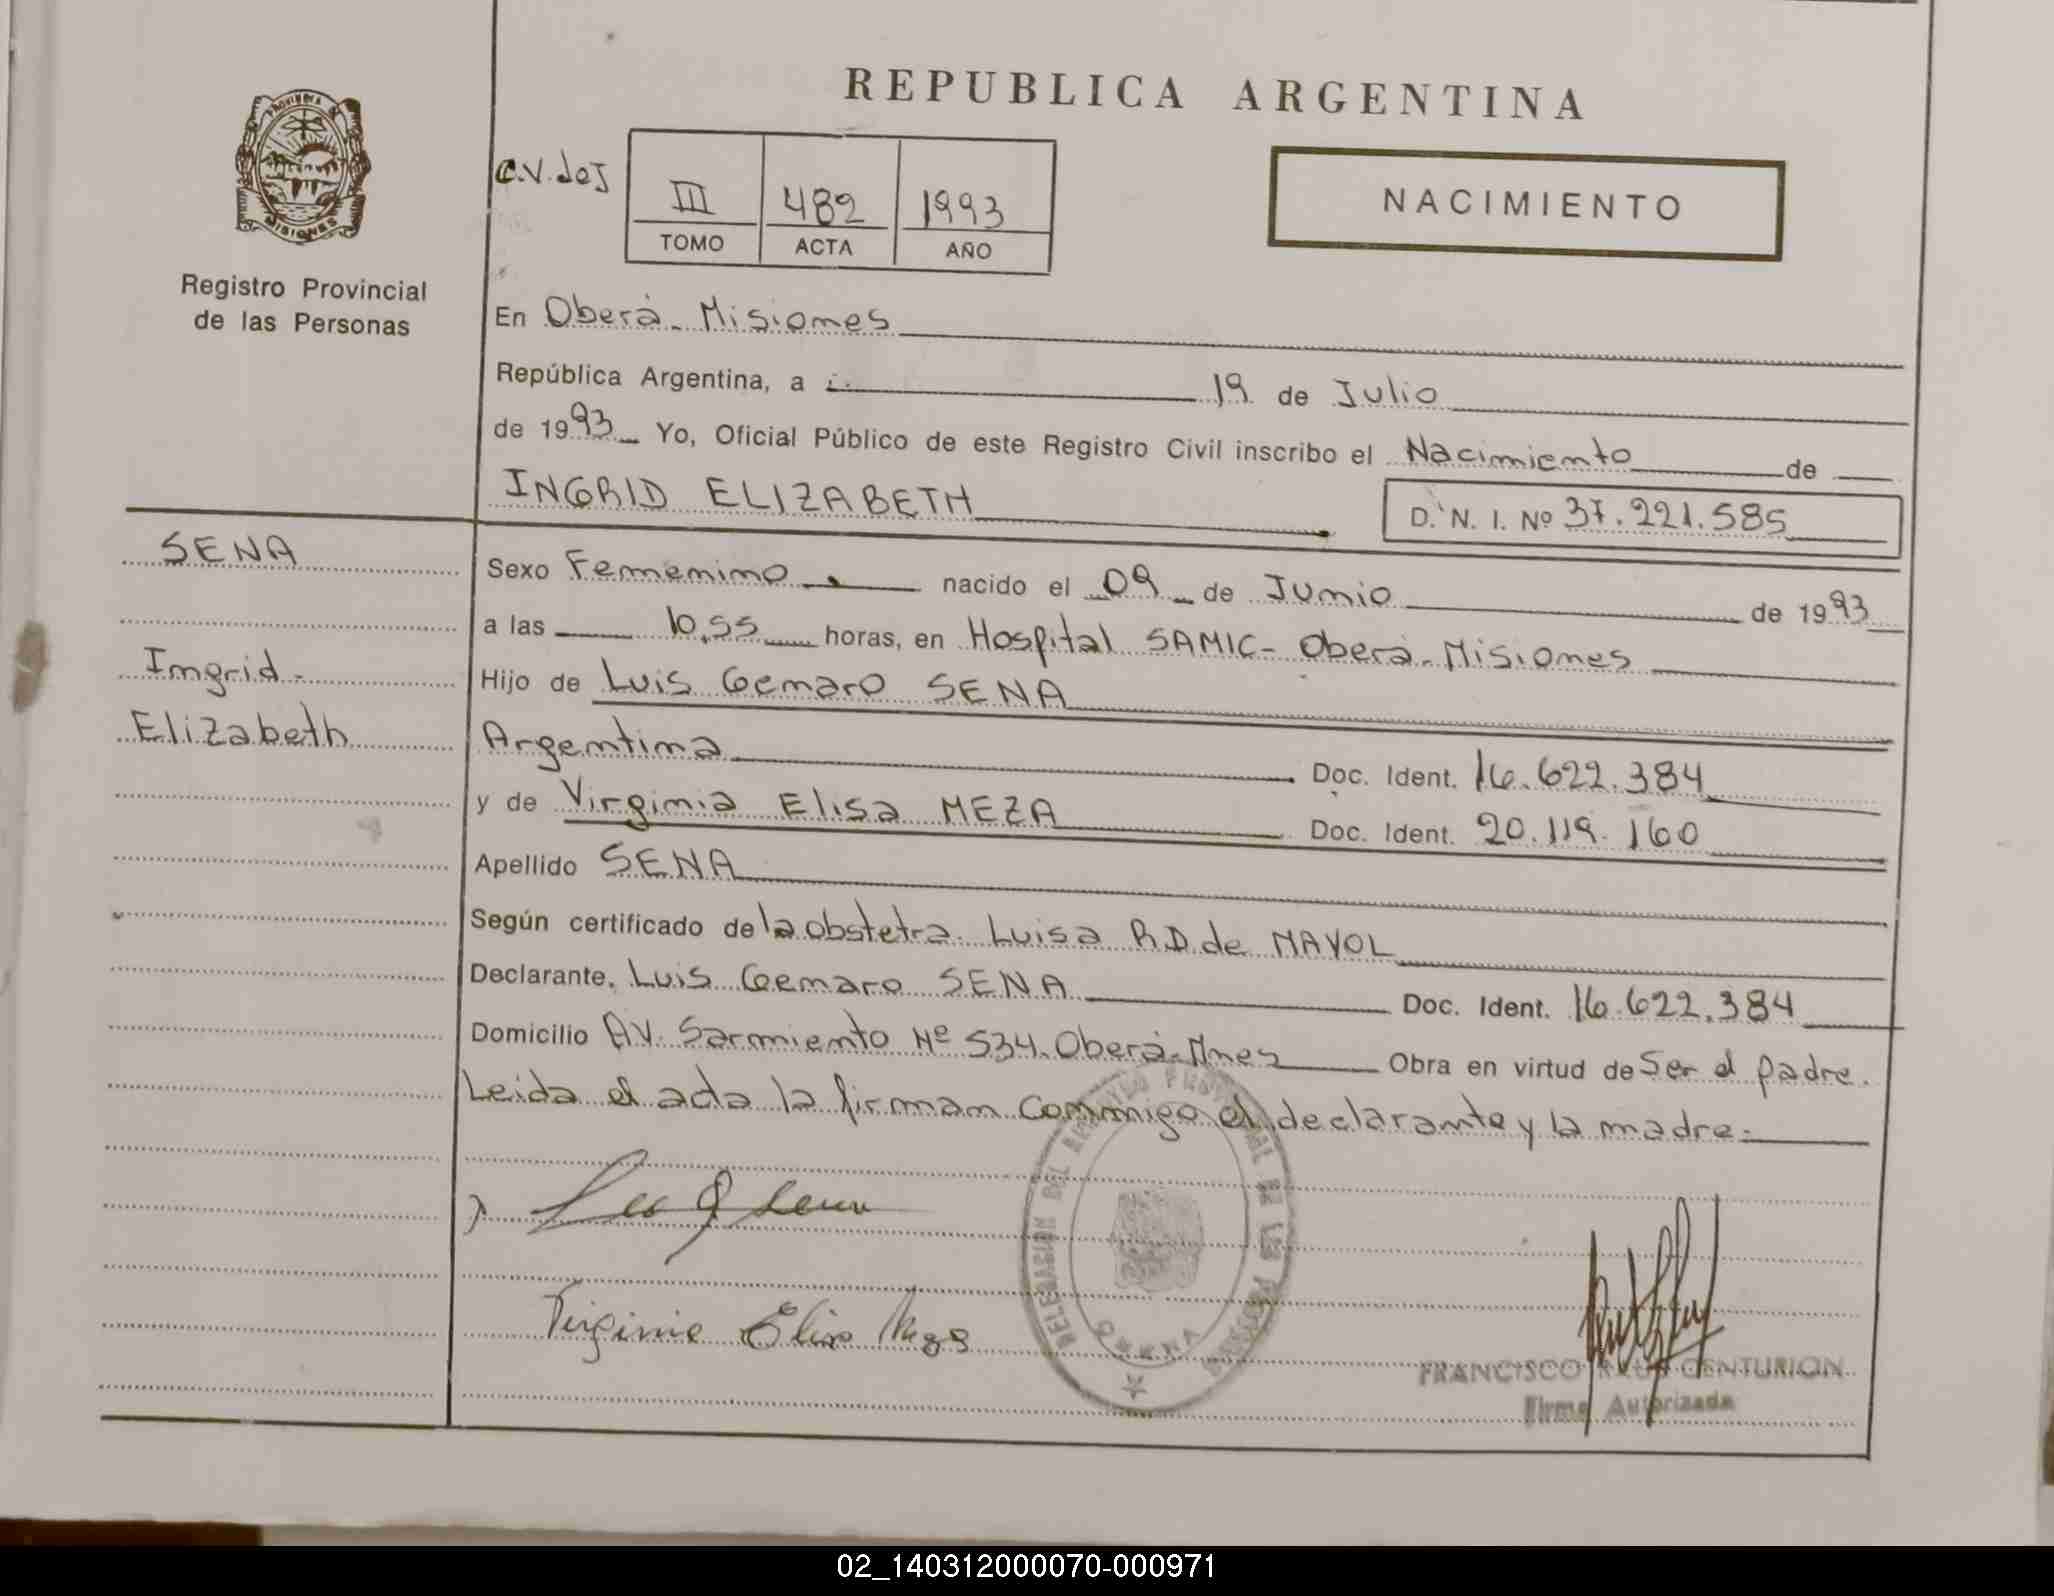 REPUBLICA ARGENTINA
NACIMIENTO
C.V. deJ
III 482 1993
TOMO ACTA AÑO
PROVINCIA DE MISIONES
Registro Provincial
de las Personas
En Oberá - Misiones
República Argentina, a 19 de Julio
de 1993 Yo, Oficial Público de este Registro Civil inscribo el Nacimiento de
INGRID ELIZABETH
D. N. I. Nº 37.221.585
SENA
Ingrid -
Elizabeth
Sexo Femenino nacido el 09 de Junio de 1993
a las 10,55 horas, en Hospital SAMIC - Oberá - Misiones
Hijo de Luis Genaro SENA
Argentina Doc. Ident. 16.622.384
y de Virginia Elisa MEZA Doc. Ident. 20.119.160
Apellido SENA
Según certificado de la obstetra Luisa R.D. de MAYOL
Declarante, Luis Genaro SENA Doc. Ident. 16.622.384
Domicilio AV. Sarmiento Nº 534. Oberá - Mnes Obra en virtud de Ser el padre.
Leida el acta la firman conmigo el declarante y la madre.-
Virginia Elisa Meza
DELEGACION DEL REGISTRO PROVINCIAL DE LAS PERSONAS
FRANCISCO CENTURION
Firma Autorizada
02_140312000070-000971